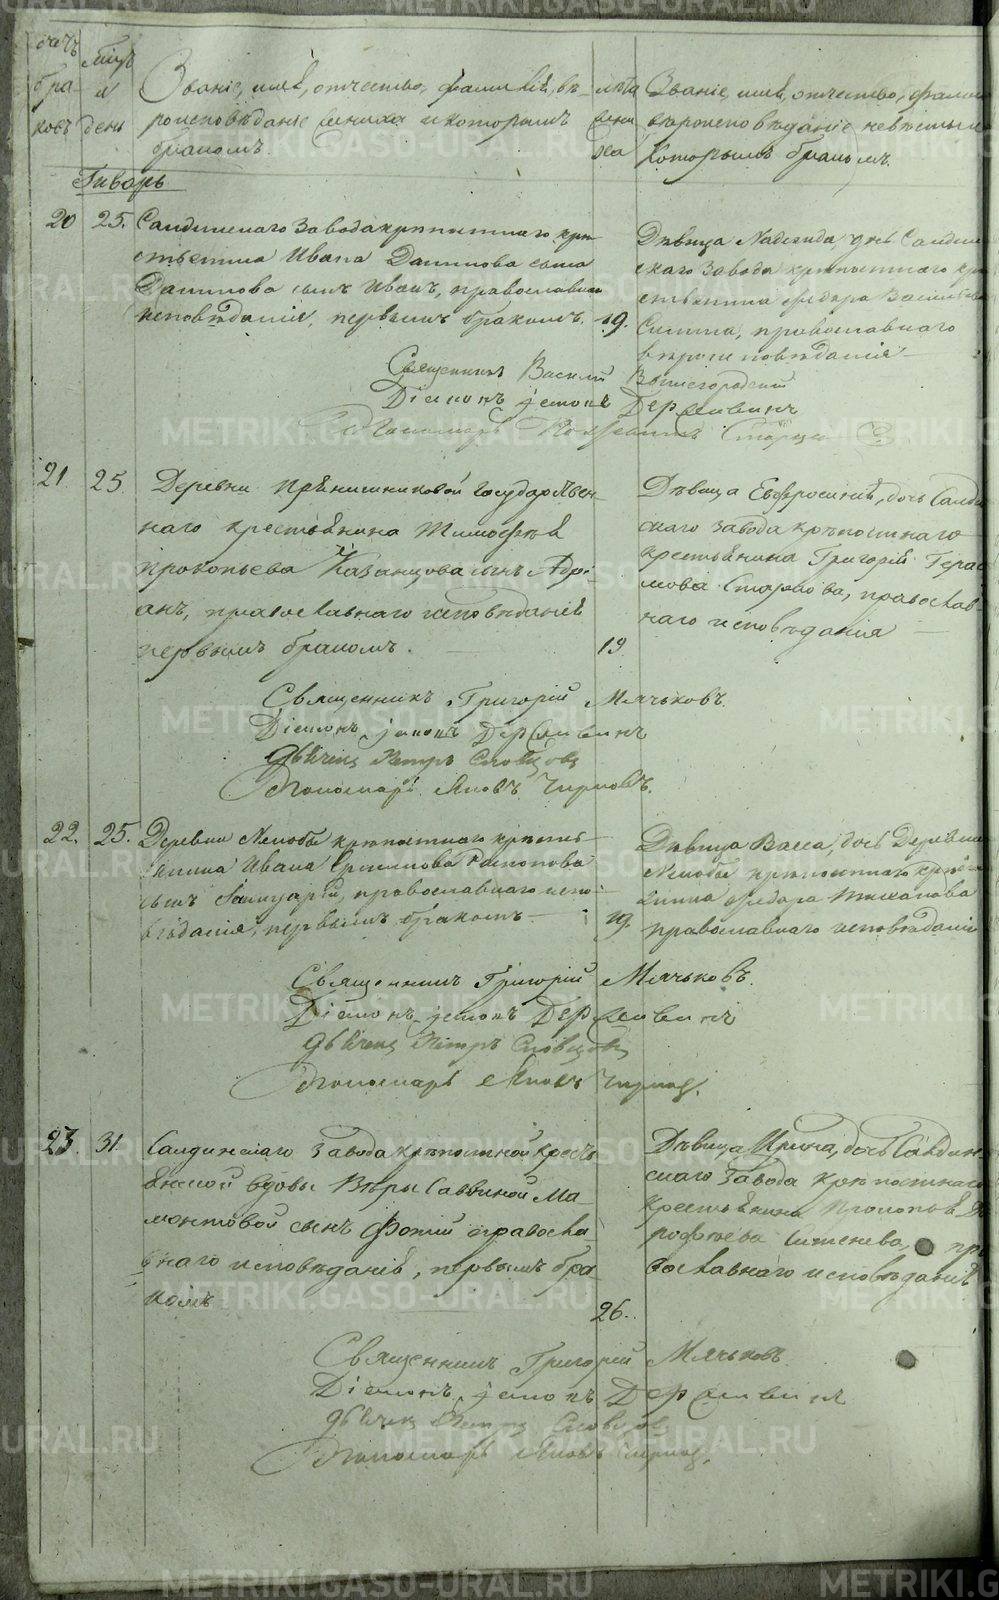 счетъ бра- ковъ
Мѣсяцъ и день
Званіе, имя, отчество, фамилія, вѣ-
роисповѣданіе жениха и которымъ
бракомъ.
лѣта
жени
ха
Званіе, имя, отчество, фамилія
вѣроисповѣданіе невѣсты и
которымъ бракомъ.
Генварь
20 25. Салдинскаго завода крѣпостнаго кре-
стьянина Ивана Данилова сына
Данилова сынъ Иванъ, православнаго
исповѣданія, первымъ бракомъ. 19.
Дѣвица Надежда, дочь Салдин-
скаго завода крѣпостнаго кре-
стьянина Федора Васильева
православнаго
вѣроисповѣданія
Священникъ Василій Вышегородскій
Діаконъ Іаковъ Державинъ
Пономарь
21 25 Деревни Прянишниковой государствен-
наго крестьянина Тимофѣя
Прокопьева Казанцова сынъ Адрі-
анъ, православнаго исповѣданія
первымъ бракомъ. 19
Дѣвица Евфросинія, дочь Салдин-
скаго завода крѣпостнаго
крестьянина Григорія Гера-
симова православ-
наго исповѣданія
Священникъ Григорій Мячьковъ.
Діаконъ Іаковъ Державинъ
Дьячекъ Петръ Словцовъ
Пономарь Яковъ Чирковъ.
22. 25. Деревни Нелобы крѣпостнаго кресть-
янина Ивана
сынъ православнаго испо-
вѣданія, первымъ бракомъ 19.
Дѣвица Васса, дочь Деревни
Нелобы крѣпостнаго кресть-
янина Федора
православнаго исповѣданія
Священникъ Григорій Мячьковъ.
Діаконъ Іаковъ Державинъ
Дьячекъ Петръ Словцовъ
Пономарь Яковъ Чирковъ.
23. 31. Салдинскаго завода крѣпостной кресть
янской вдовы Вѣры Саввиной Ма-
монтовой сынъ Фотій правосла-
внаго исповѣданія, первымъ бра-
комъ 26.
Дѣвица Ирина, дочь Салдин-
скаго завода крѣпостнаго
крестьянина
православнаго исповѣданія
Священникъ Григорій Мячьковъ.
Діаконъ Іаковъ Державинъ
Дьячекъ Петръ Словцовъ
Пономарь Яковъ Чирковъ.
METRIKI.GASO-URAL.RU